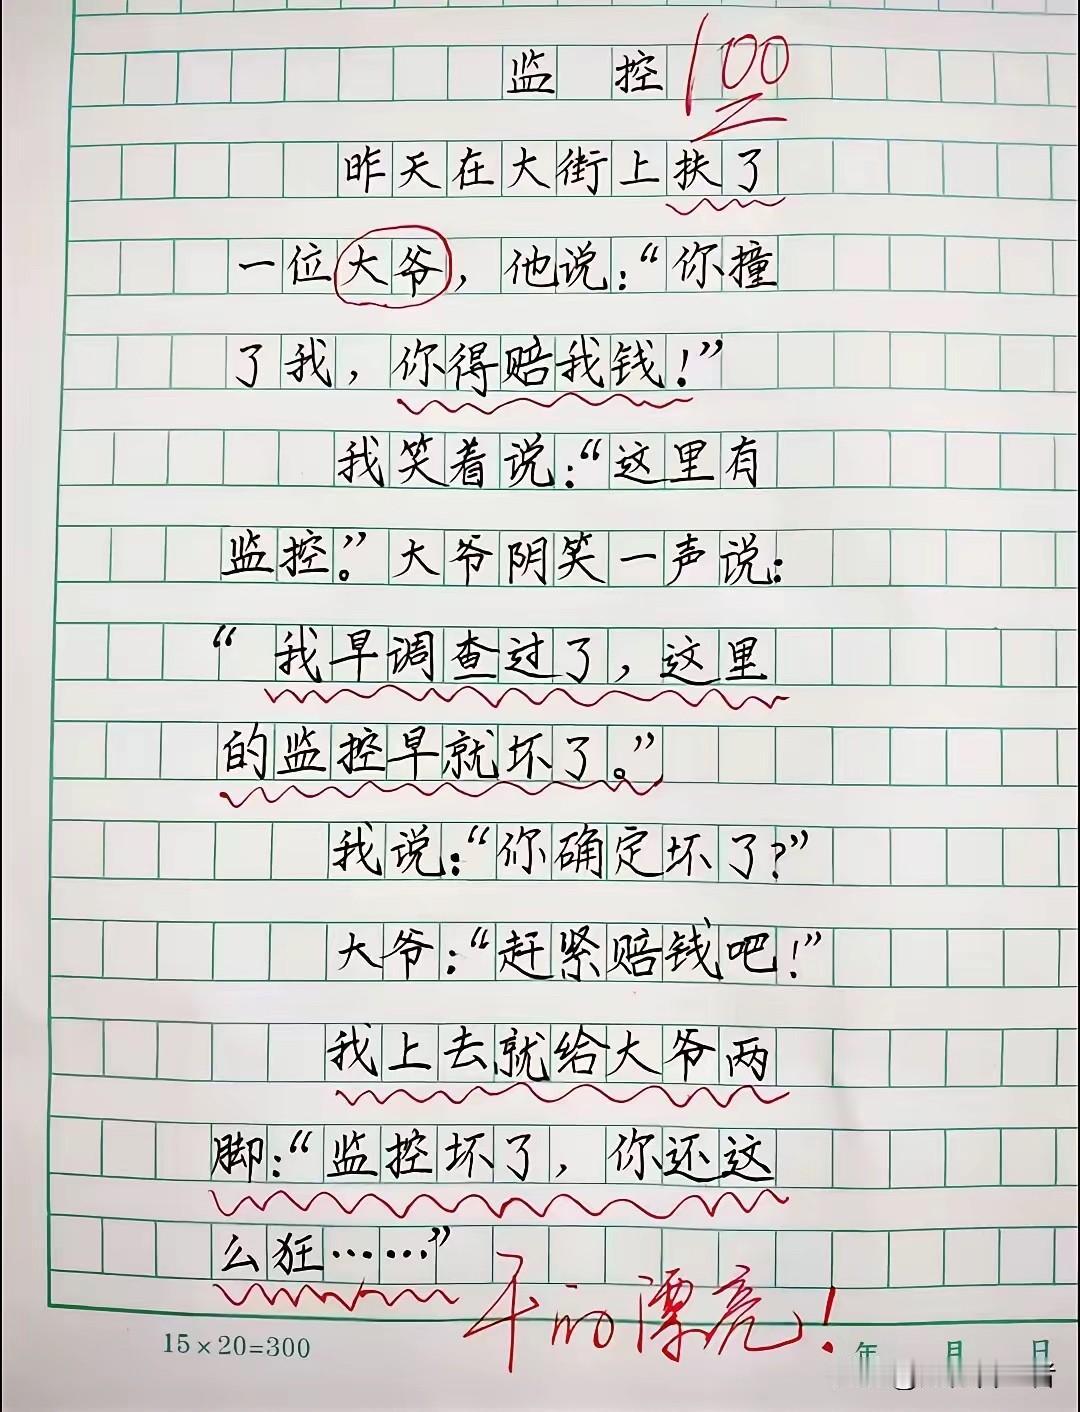 监控 100
昨天在大街上扶了
一位大爷，他说：“你撞
了我，你得赔我钱！”
我笑着说：“这里有
监控。”大爷阴笑一声说：
“我早调查过了，这里
的监控早就坏了。”
我说：“你确定坏了？”
大爷：“赶紧赔钱吧！”
我上去就给大爷两
脚：“监控坏了，你还这
么狂……”
干的漂亮！
15×20=300 年 月 日